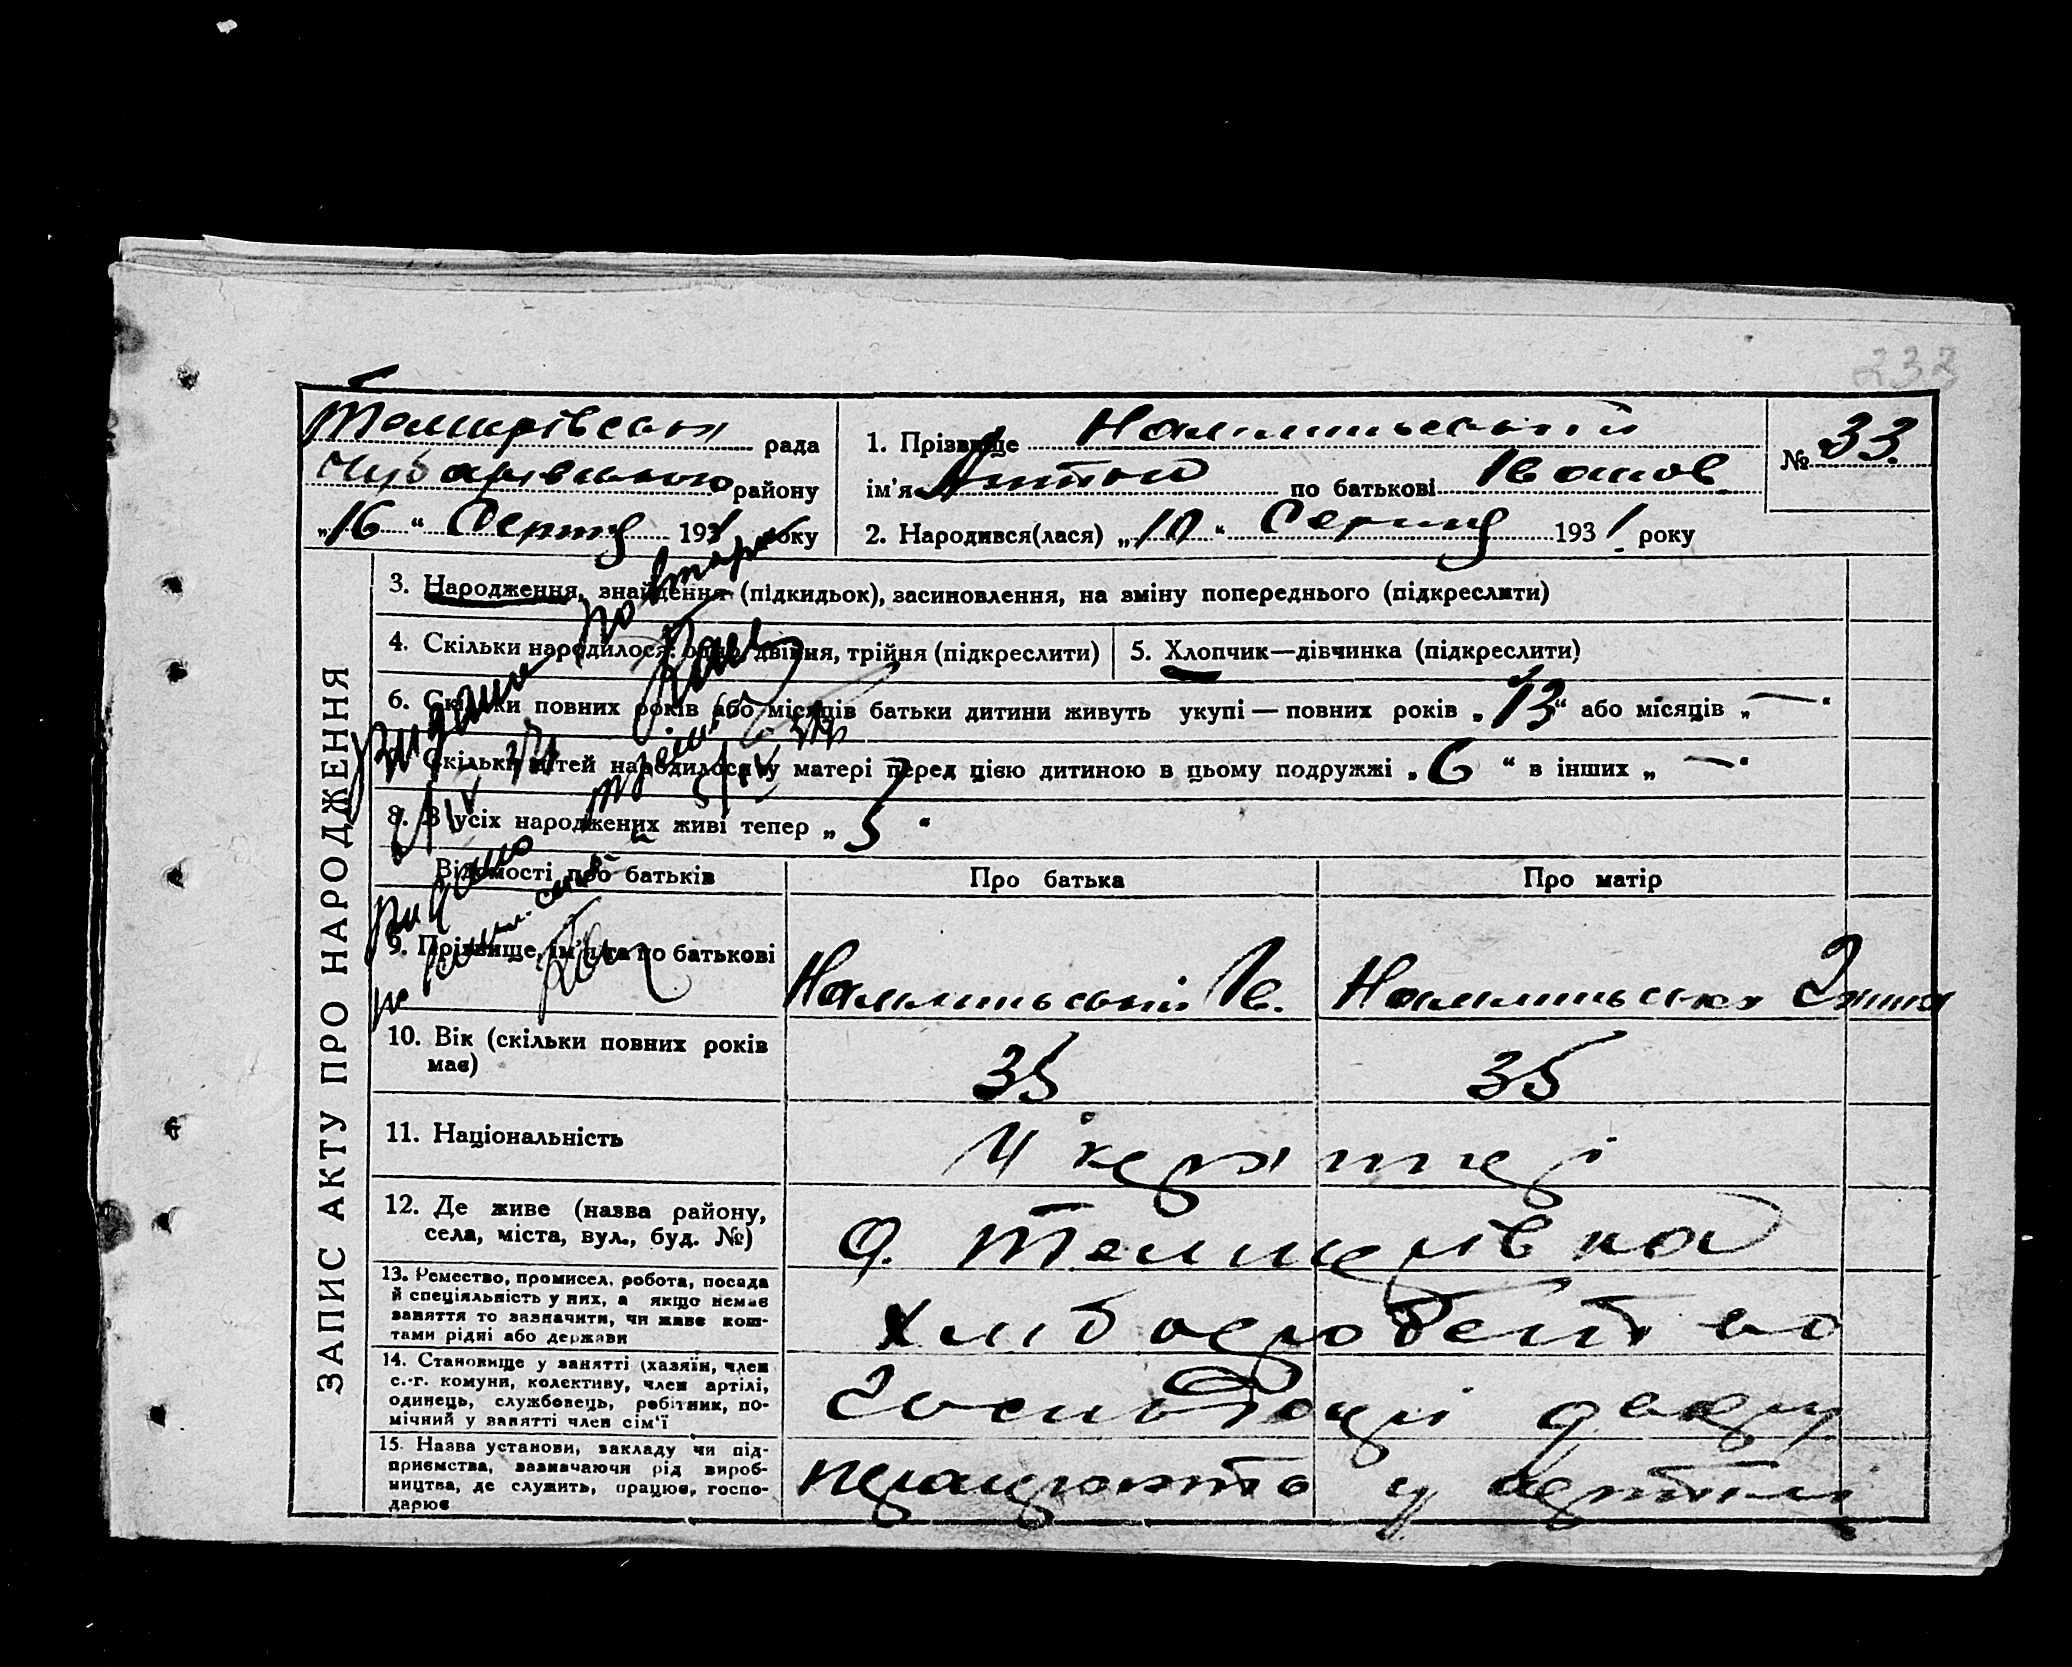 233
Темирівська рада
Чубарівського району
„16“ Серпня 1931 року
1. Прізвище
ім'я Антон по батькові Іванов
№ 33.
2. Народився(лася) „10“ Серпня 1931 року
ЗАПИС АКТУ ПРО НАРОДЖЕННЯ
3. Народження, знайдення (підкидьок), засиновлення, на зміну попереднього (підкреслити)
4. Скільки народилося: одно, двійня, трійня (підкреслити)
5. Хлопчик—дівчинка (підкреслити)
6. Скільки повних років або місяців батьки дитини живуть укупі — повних років „13“ або місяців „—“
7. Скільки дітей народилося у матері перед цією дитиною в цьому подружжі „6“ в інших „—“
8. З усіх народжених живі тепер „5“
Відомості про батьків
Про батька
Про матір
9. Прізвище, ім'я та по батькові
Ів.
10. Вік (скільки повних років
має)
35
35
11. Національність
Українці
12. Де живе (назва району,
села, міста, вул., буд. №)
с. Темирівка
13. Ремество, промисел, робота, посада
й спеціяльність у них, а якщо немає
заняття то зазначити, чи живе кош-
тами рідні або держави
Хліборобство
14. Становище у занятті (хазяїн, член
с.-г. комуни, колективу, член артілі,
одинець, службовець, робітник, по-
мічний у занятті член сім'ї
Господарі двору
15. Назва установи, закладу чи під-
приємства, зазначаючи рід вироб-
ництва, де служить, працює, госпо-
дарює
працюють у артілі